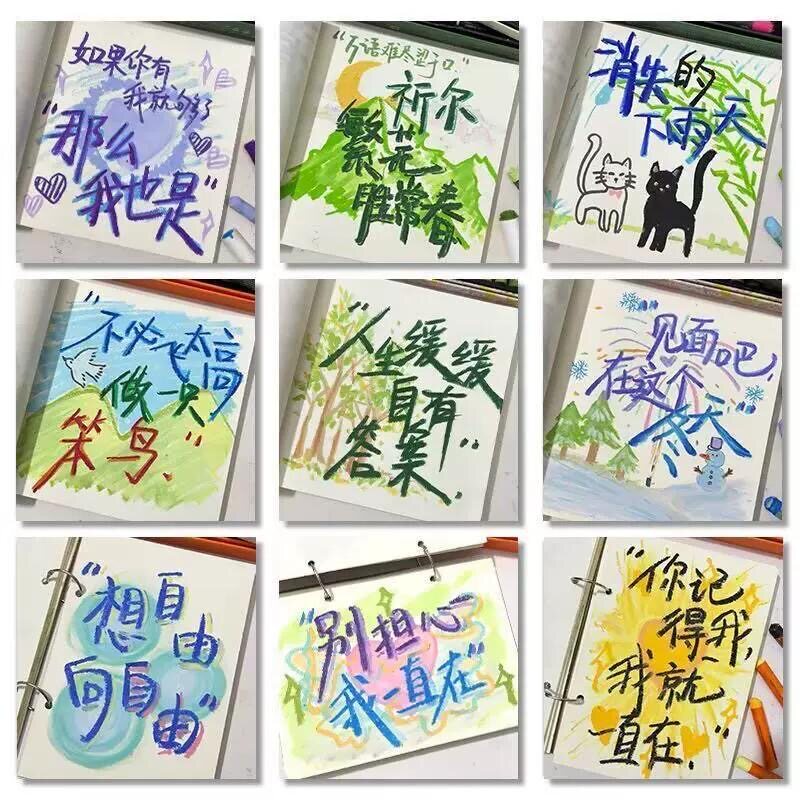 如果你有
我就够了
"那么
我也是"
"万语难尽至于口"
祈尔
繁花
胜常春
消失的
下雨天
"不必飞太高
做一只
笨鸟."
"人生缓缓
自有
答案."
见面吧,
在这个
冬天
"想自由
向自由"
"别担心
我一直在"
"你记
得我,
我就
一直在."